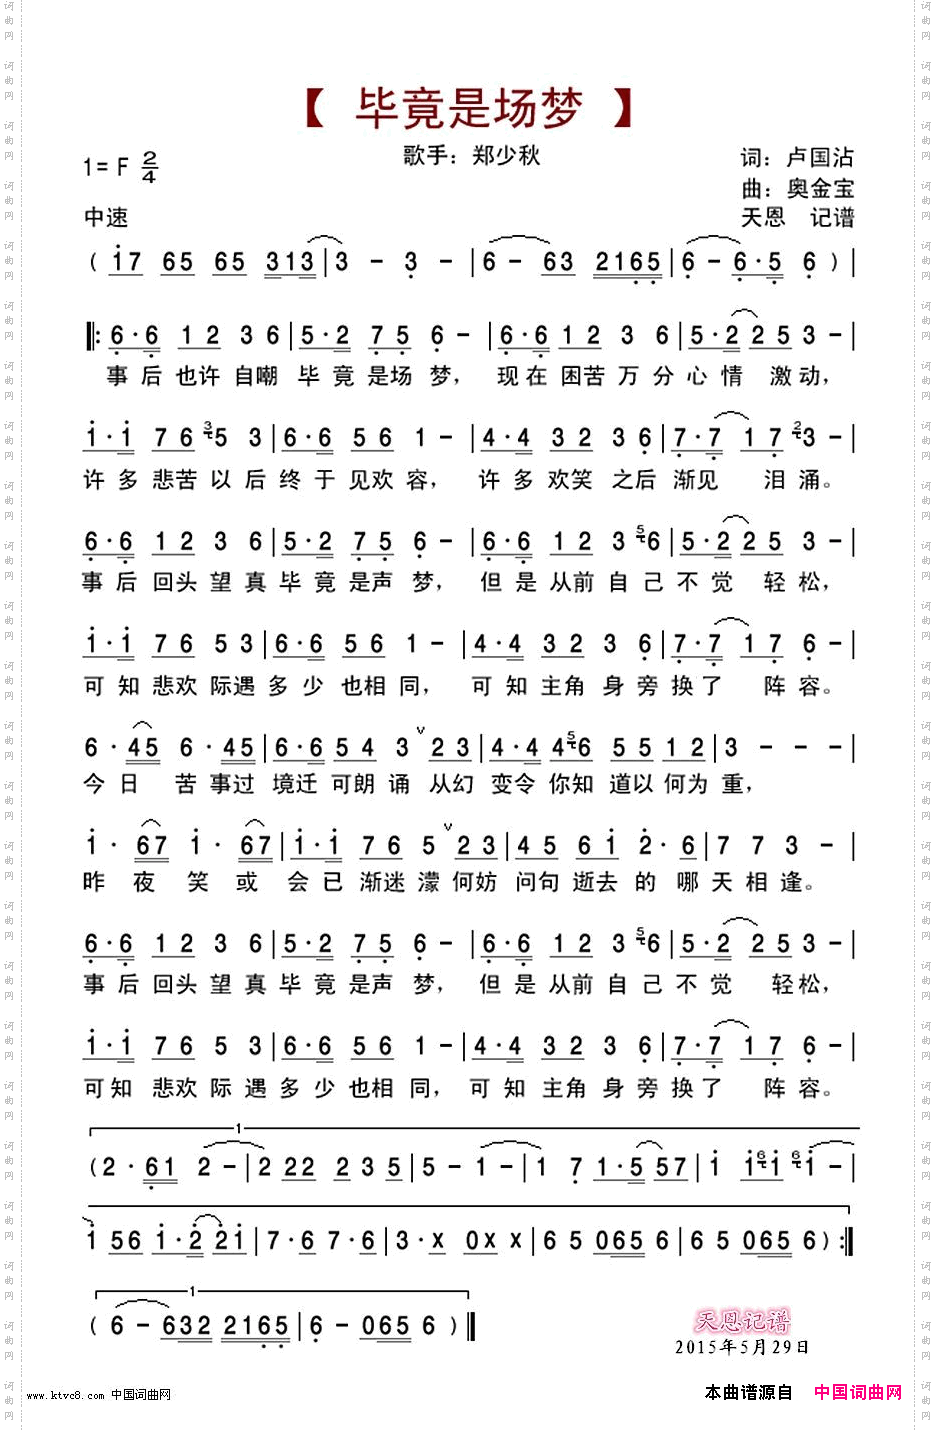 【 毕竟是场梦 】
歌手：郑少秋
1= F 2/4
词：卢国沾
曲：奥金宝
中速
天恩 记谱
( i7 65 65 313 | 3 - 3 - | 6 - 63 2165 | 6 - 6·5 6 ) |
‖: 6·6 12 36 | 5·2 75 6 - | 6·6 12 3 6 | 5·2 253 - |
事后也许自嘲 毕竟是场梦， 现在困苦万分心情 激动，
i·i 76 3 5 3 | 6·6 56 1 - | 4·4 32 36 | 7·7 17 2 3 - |
许多悲苦以后终于见欢容， 许多欢笑之后渐见 泪涌。
6·6 12 36 | 5·2 75 6 - | 6·6 12 3 5 6 | 5·2 253 - |
事后回头望真毕竟是声梦， 但是从前自己不觉 轻松，
i·i 76 53 | 6·6 56 1 - | 4·4 32 36 | 7·7 17 6 - |
可知悲欢际遇多少也相同， 可知主角身旁换了 阵容。
6·45 6·45 | 6·6 54 3 V 23 | 4·4 4 5 6 55 12 | 3 - - - |
今日 苦事过境迁可朗诵 从幻变令你知道以何为重，
i·67 i·67 | i·i 76 5 V 23 | 45 6i 2·6 | 7 7 3 - |
昨夜笑或会已渐迷濛何妨问句逝去的哪天相逢。
6·6 12 36 | 5·2 75 6 - | 6·6 12 3 5 6 | 5·2 253 - |
事后回头望真毕竟是声梦， 但是从前自己不觉 轻松，
i·i 76 53 | 6·6 56 1 - | 4·4 32 36 | 7·7 17 6 - |
可知悲欢际遇多少也相同， 可知主角身旁换了 阵容。
1
( 2·61 2 - | 2 22 235 | 5 - 1 - | 1 7 1·5 57 | i 6 i i 6 i - |
i 56 i·2 2i | 7·6 7·6 | 3·x 0x x | 6 5 065 6 | 6 5 065 6 ) :‖
1
( 6 - 632 2165 | 6 - 065 6 ) ‖
天恩记谱
2015年5月29日
www.ktvc8.com 中国词曲网
本曲谱源自 中国词曲网
词曲网